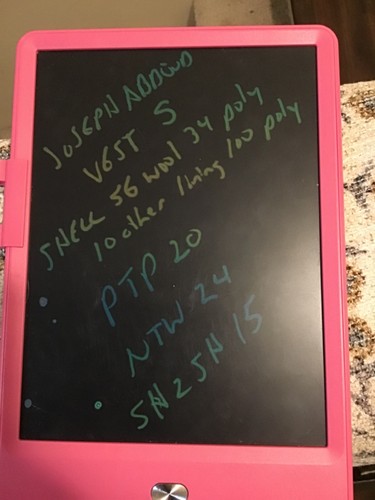 JOSEPH ABBOUD
VEST S
SHELL 56 wool 34 poly
10 other lining 100 poly
PTP 20
NTW 24
SH 2 SH 15